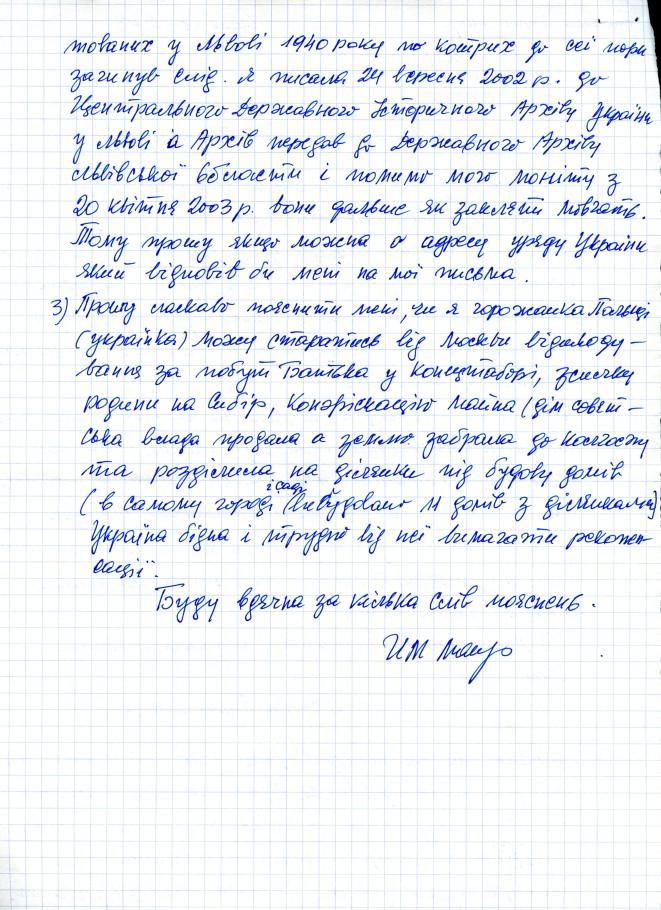 тованих у Львові 1940 року по котрих до сеї пори
загинув слід. Я писала 24 вересня 2002 р. до
Центрального Державного Історичного Архіву України
у Львові а Архів передав до Державного Архіву
Львівської Области і помимо мого моніту з
20 квітня 2003 р. вони дальше як закляті мовчать.
Тому прошу якщо можна о адресу уряду України
який відповів би мені на мої письма.
3) Прошу ласкаво пояснити мені, чи я горожанка Польщі
(українка) можу старатись від Москви відшкоду-
вання за побут Батька у концтаборі, зсилку
родини на Сибір, конфіскацію майна (дім совєт-
ська влада продала а землю забрала до колгоспу
та розділила на ділянки під будову домів
(в самому городі і саді вибудовано 11 домів з ділянками)
Україна бідна і трудно від неї вимагати рекомпен
сації.
Буду вдячна за кілька слів пояснень.
ИМ